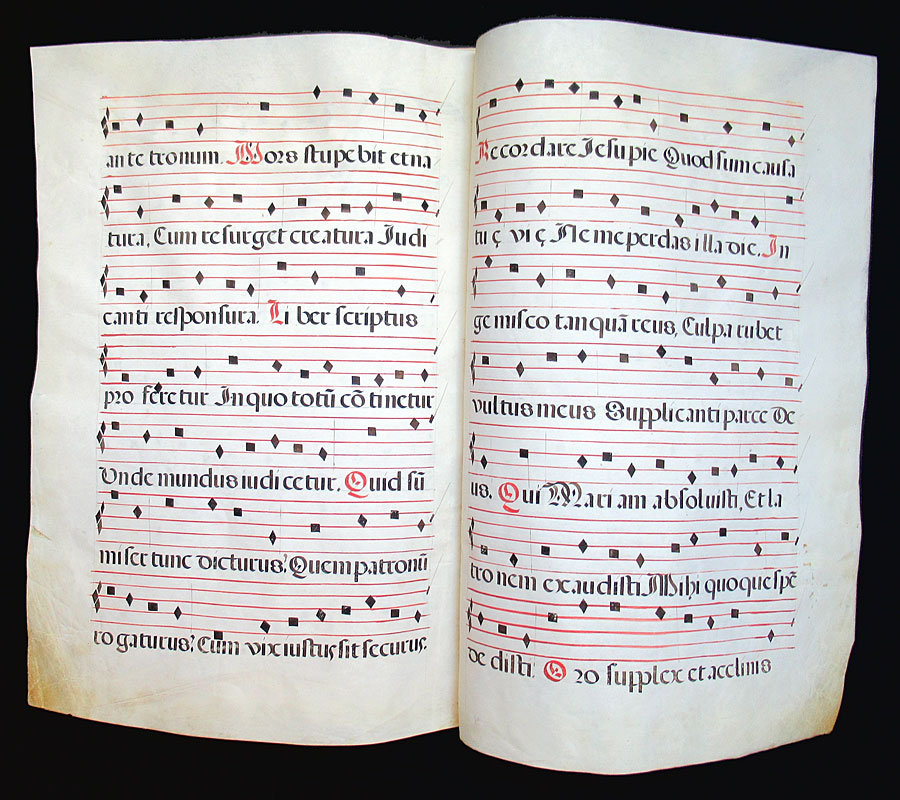 ante tronum. Mors stupebit et na
tura, Cum resurget creatura Judi
canti responsura. Li ber scriptus
pro feretur In quo totũ cõ tinetur
Unde mundus iudi cetur. Quid sũ
miser tunc dicturus? Quem patronũ
ro gaturus? Cum vix iustus sit securus.
Recordare Iesu pie Quod sum causa
tu ę vi ę Ne me perdas illa die. In
ge misco tanquã reus, Culpa rubet
vultus meus Supplicanti parce De
us. Qui Mari am absoluisti, Et la
tro nem exaudisti Mihi quoque spẽ
de disti. O ro supplex et acclinis